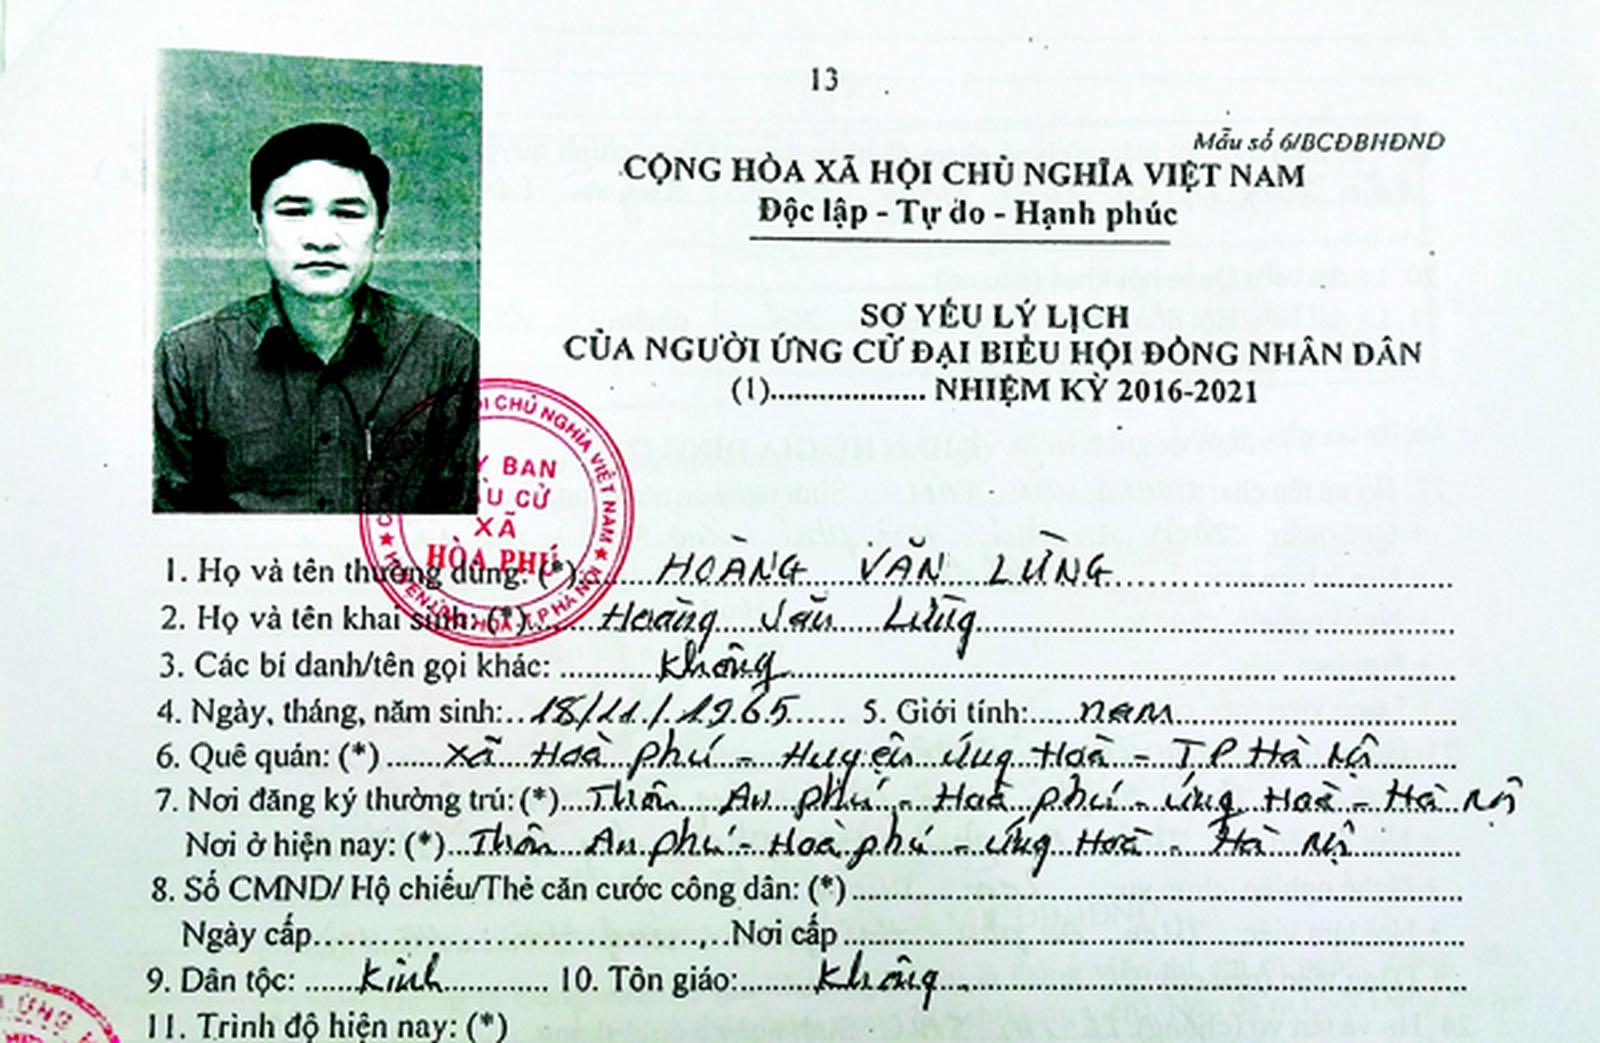 13
Mẫu số 6/BCĐBHĐND
CỘNG HÒA XÃ HỘI CHỦ NGHĨA VIỆT NAM
Độc lập - Tự do - Hạnh phúc
SƠ YẾU LÝ LỊCH
CỦA NGƯỜI ỨNG CỬ ĐẠI BIỂU HỘI ĐỒNG NHÂN DÂN
(1).................... NHIỆM KỲ 2016-2021
Y BAN
U CỬ
XÃ
HÒA PHÚ
1. Họ và tên thường dùng: (*) HOÀNG VĂN LỪNG
2. Họ và tên khai sinh: (*) Hoàng Văn Lừng
3. Các bí danh/tên gọi khác: Không
4. Ngày, tháng, năm sinh: 18/11/1965 5. Giới tính: nam
6. Quê quán: (*) xã Hoà phú - Huyện ứng Hoà - TP Hà Nội
7. Nơi đăng ký thường trú: (*) Thôn An phú - Hoà phú - ứng Hoà - Hà Nội
Nơi ở hiện nay: (*) Thôn An phú - Hoà phú - ứng Hoà - Hà Nội
8. Số CMND/ Hộ chiếu/Thẻ căn cước công dân: (*)
Ngày cấp Nơi cấp
9. Dân tộc: Kinh 10. Tôn giáo: Không
11. Trình độ hiện nay: (*)